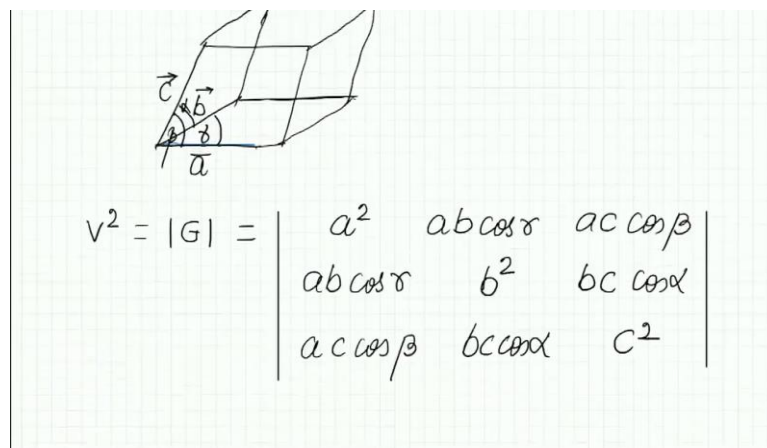 c⃗
α b⃗
β γ
a̅
V² = |G| = | a² ab cosγ ac cosβ |
| ab cosγ b² bc cosα |
| ac cosβ bc cosα c² |